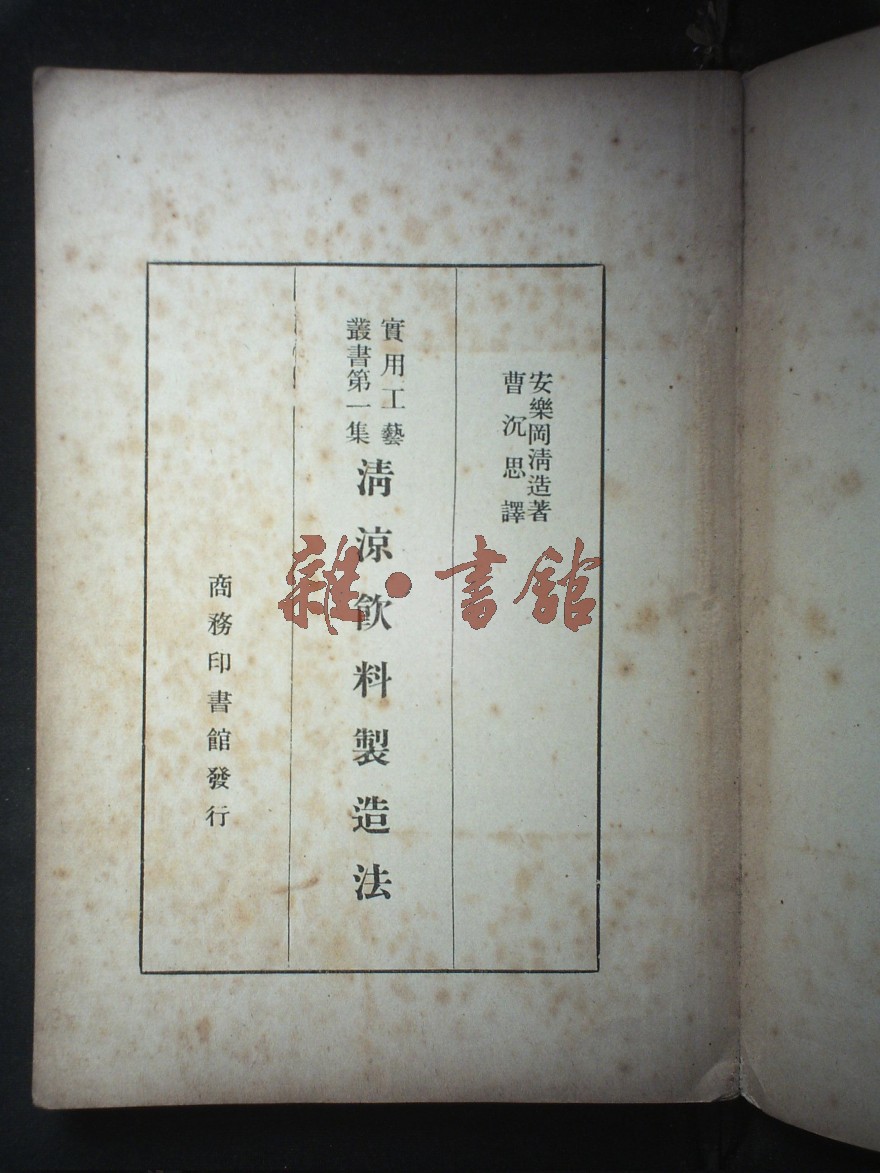 安樂岡淸造著
曹沉思譯
實用工藝
叢書第一集
淸凉飮料製造法
商務印書館發行
雜·書館